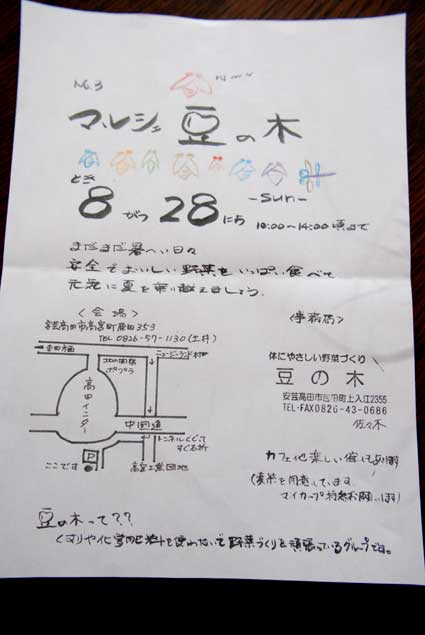 No.3
マルシェ 豆の木
とき
8がつ28にち -sun- 10:00〜14:00頃まで
まだまだ暑〜い日々
安全でおいしい野菜をいっぱい食べて
元気に夏を乗り越えましょう.
〈会場〉
安芸高田市高宮町原田353
TEL 0826-57-1130(土井)
吉田橋
北の関宿
ポプラ
ニュージーランド村
高田インター
中国道
トンネルくぐって
すぐ右折
P
ここです
高宮工業団地
〈事務局〉
体にやさしい野菜づくり
豆の木
安芸高田市吉田町上入江2355
TEL・FAX0826-43-0686
佐々木
カフェ他楽しい催しあります
(麦茶を用意しています.
マイカップ持参お願いします)
豆の木って??
くすりや化学肥料を使わないで野菜づくりを頑張っているグループです。